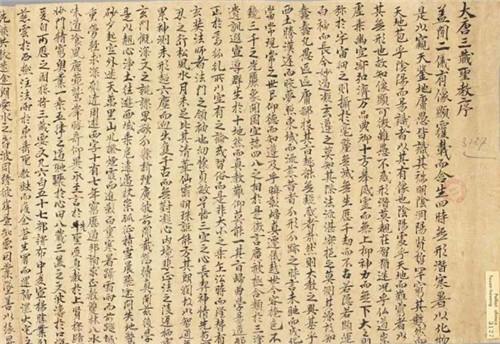 大唐三藏聖教序
蓋聞二儀有像顯覆載而含生四時無形潛寒暑以化物
是以窺天鑒地庸愚皆識其端明陰洞陽賢哲罕窮其數然而
天地苞乎陰陽而易識者以其有像也陰陽處乎天地而難窮者以
其無形也故知像顯可徵雖愚不惑形潛莫覩在智猶迷況乎佛道崇
虛乘幽控寂弘濟萬品典御十方舉威靈而無上抑神力而無下大之
則彌於宇宙細之則攝於毫釐無滅無生歷千劫而不古若隱若顯運百
福而長今妙道凝玄遵之莫知其際法流湛寂挹之莫測其源故知
蠢蠢凡愚區區庸鄙投其旨趣能無疑惑者哉然則大教之興基乎
西土騰漢庭而皎夢照東域而流慈昔者分形分跡之時言未馳而成
化當常現常之世民仰德而知遵及乎晦影歸真遷儀越世金容掩色不
鏡三千之光麗象開圖空端四八之相於是微言廣被拯含類於三途
遺訓遐宣導群生於十地然而真教難仰莫能一其旨歸曲學易遵邪
正於焉紛糺所以空有之論或習俗而是非大小之乘乍沿時而隆替有
玄奘法師者法門之領袖也幼懷貞敏早悟三空之心長契神情先苞四
忍之行松風水月未足比其清華仙露明珠詎能方其朗潤故以智通無
累神測未形超六塵而迥出隻千古而無對凝心內境悲正法之陵遲栖慮
玄門慨深文之訛謬思欲分條析理廣彼前聞截偽續真開茲後學
是以翹心淨土往遊西域乘危遠邁杖策孤征積雪晨飛途間失地驚
砂夕起空外迷天萬里山川撥煙霞而進影百重寒暑躡霜雨而前蹤誠
重勞輕求深願達周遊西宇十有七年窮歷道邦詢求正教雙林八水
味道飡風鹿苑鷲峰瞻奇仰異承至言於先聖受真教於上賢探賾
妙門精窮奧業一乘五律之道馳驟於心田八藏三篋之文波濤於口
海爰自所歷之國總將三藏要文凡六百五十七部譯布中夏宣揚勝業引
慈雲於西極注法雨於東垂聖教缺而復全蒼生罪而還福濕火宅之乾